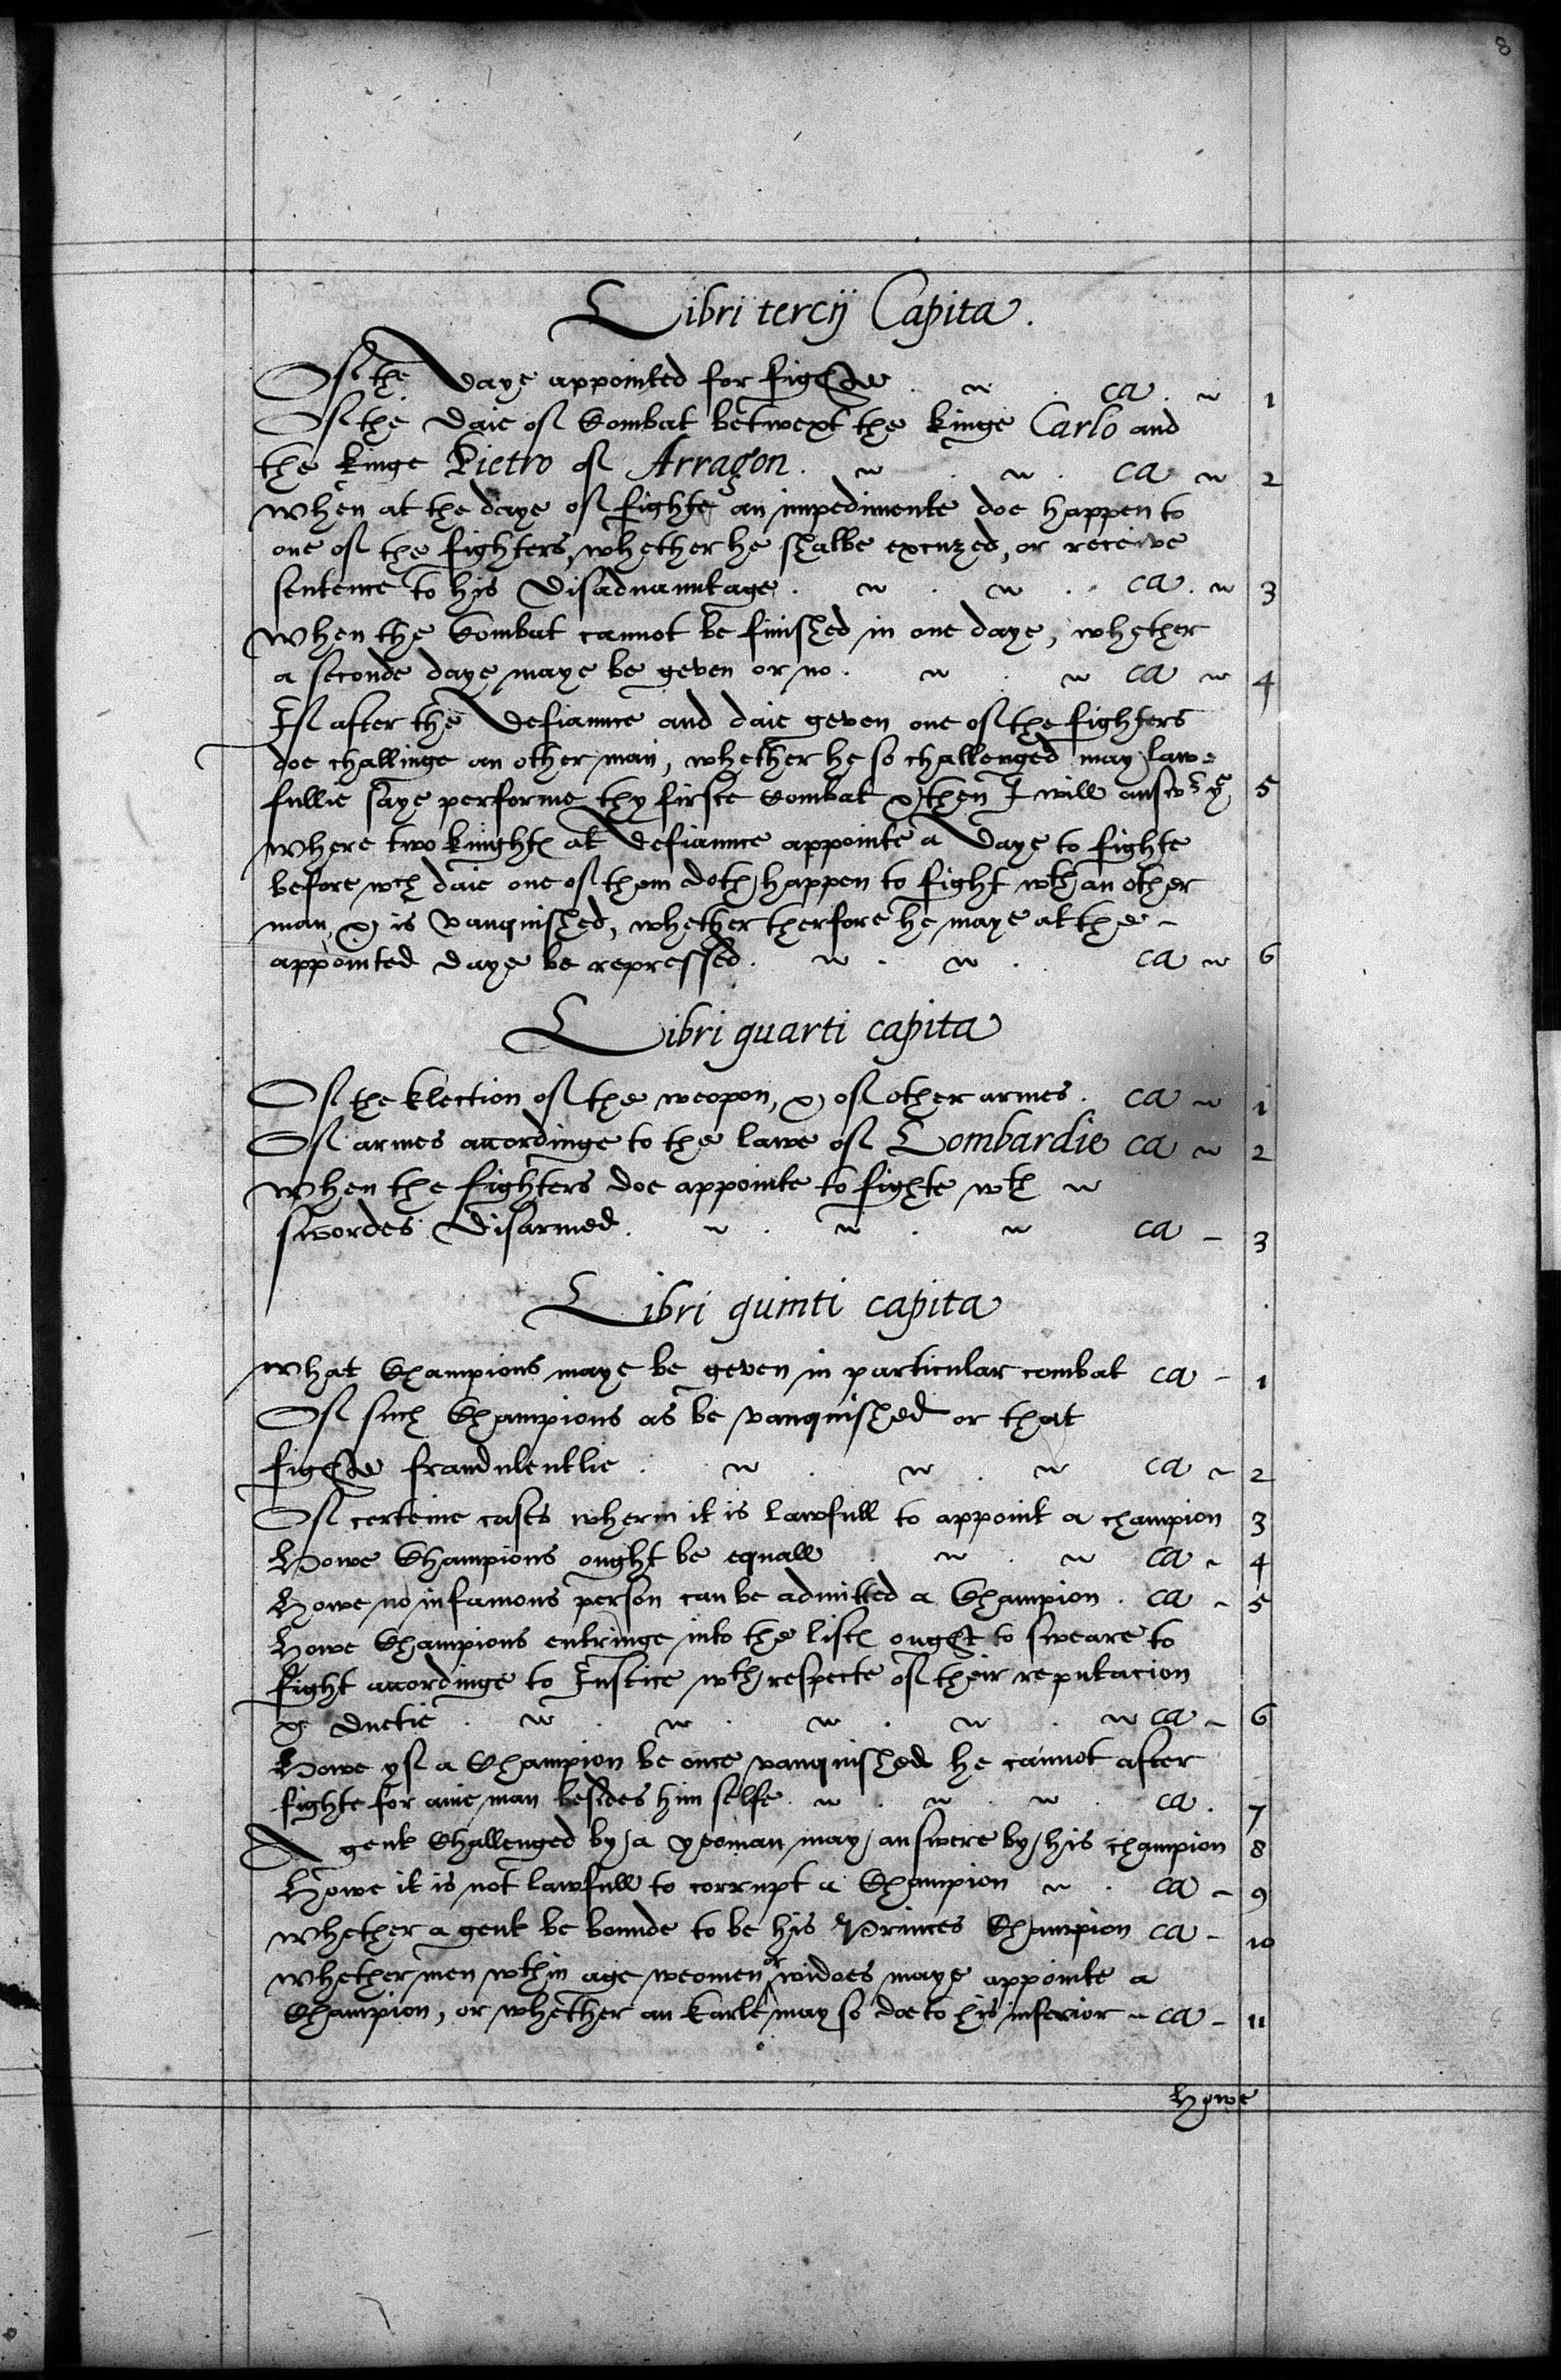 8
Libri tercij Capita.
Of the daye appointed for fighte . ca . 1
Of the daie of Combat betwext the kinge Carlo and
the kinge Pietro of Arragon . . ca 2
When at the daye of fighte an impedimente doe happen to
one of the fighters, whether he shalbe excuzed, or receive
sentence to his disaduauntage . . . ca . 3
When the Combat cannot be finished in one daye, whether
a seconde daye maye be geven or no . . ca 4
If after the defiaunce and daie geven one of the fighters
doe challinge an other man, whether he so challenged may law=
fullie saye performe thy firste Combat & then I will answr ye 5
Where two knightes at defiaunce appointe a daye to fighte
before wch daie one of them doth happen to fight wth an other
man, & is vanquished, whether therfore he maye at the -
appointed daye be repressed . . . ca 6
Libri quarti capita
Of the Election of the weopon, & of other armes . ca 1
Of armes accordinge to the lawe of Lombardie ca 2
When the fighters doe appointe to fighte wth
swordes disarmed . . . ca - 3
Libri quinti capita
What Champions maye be geven in particular combat ca - 1
Of such Champions as be vanquished or that
fighte fraudulentlie . . . ca - 2
Of certeine cases wherin it is lawfull to appoint a champion 3
Howe Champions ought be equall . . ca - 4
Howe no infamous person can be admitted a Champion . ca - 5
Howe Champions entringe into the listes ought to sweare to
fight accordinge to Justice wth respecte of their reputacion
& duetie . . . . . ca - 6
Howe yf a Champion be once vanquished he cannot after
fighte for anie man besides him selfe . . . ca . 7
A gent Challenged by a yeoman may answere by his champion 8
Howe it is not lawfull to corrupt a Champion . ca - 9
Whether a gent be bounde to be his Princes Champion ca - 10
Whether men wthin age weomen or widoes maye appointe a
Champion, or whether an Earle may so doe to his inferior - ca - 11
Howe